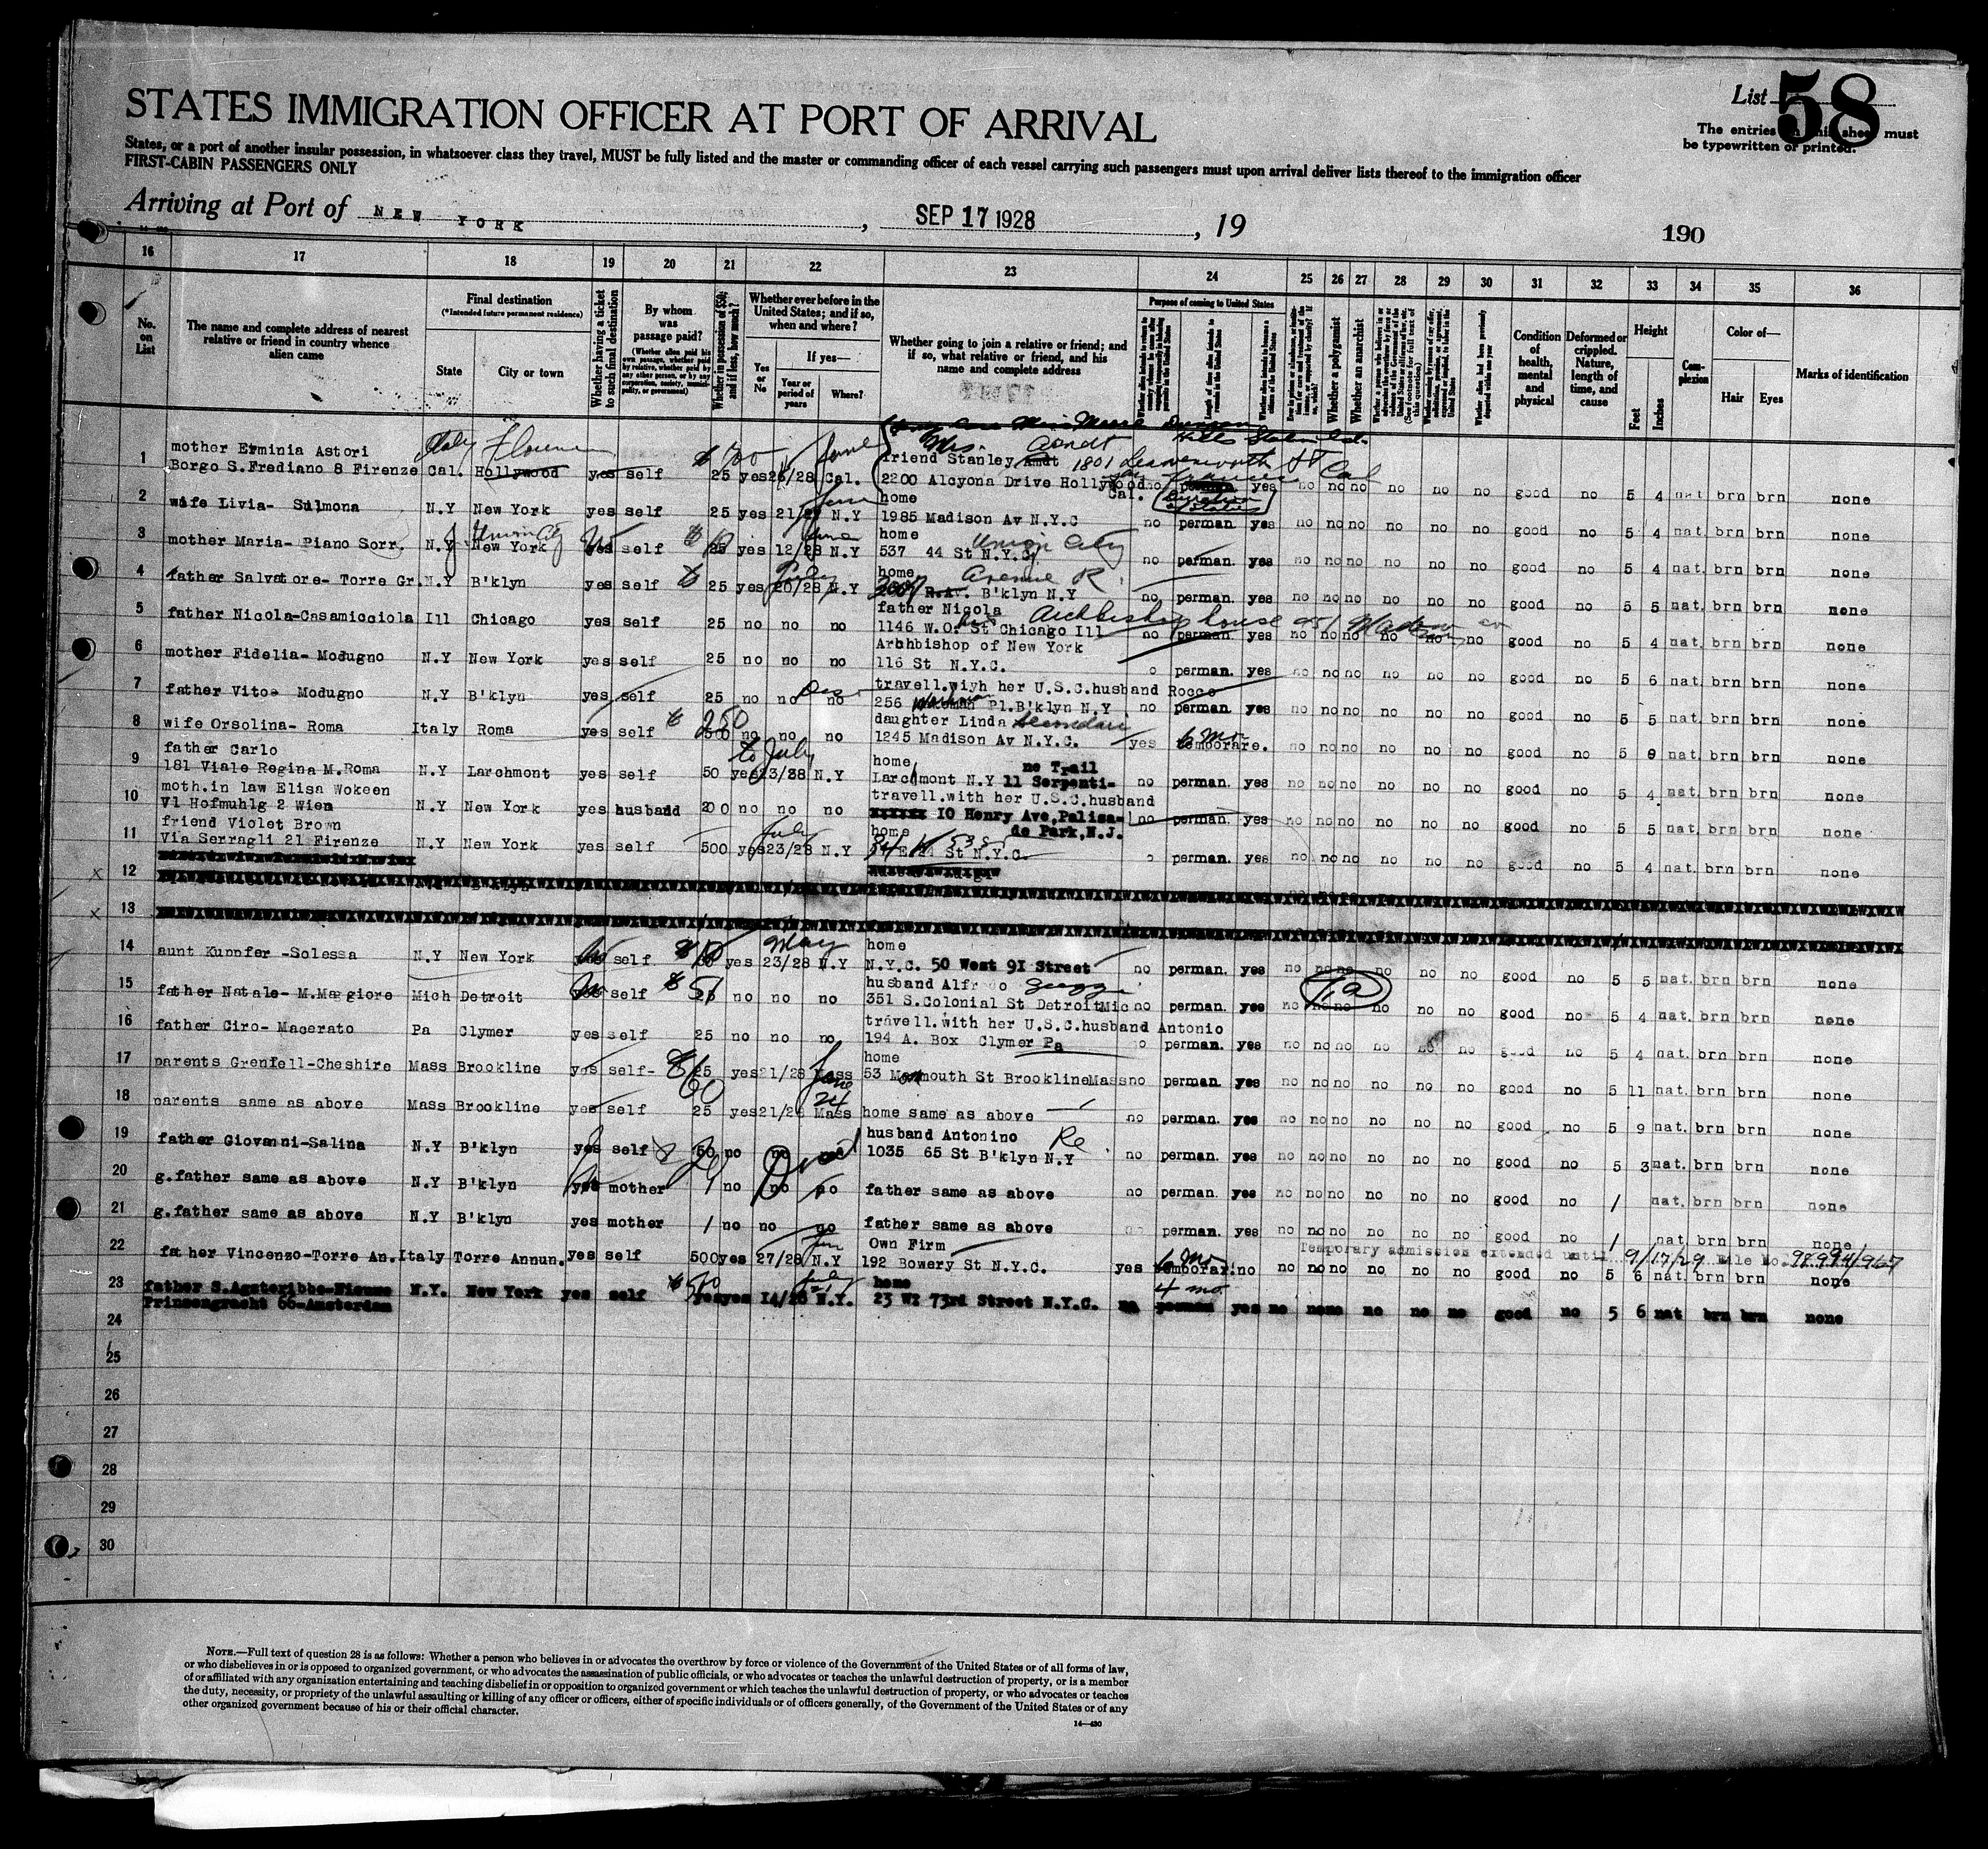 List 58
STATES IMMIGRATION OFFICER AT PORT OF ARRIVAL
The entries on this sheet must
be typewritten or printed.
States, or a port of another insular possession, in whatsoever class they travel, MUST be fully listed and the master or commanding officer of each vessel carrying such passengers must upon arrival deliver lists thereof to the immigration officer
FIRST-CABIN PASSENGERS ONLY
Arriving at Port of NEW YORK, SEP 17 1928, 19
190
16 17 18 19 20 21 22 23 24 25 26 27 28 29 30 31 32 33 34 35 36
No. on List
The name and complete address of nearest relative or friend in country whence alien came
Final destination
(*Intended future permanent residence)
State
City or town
Whether having a ticket to such final destination
By whom was passage paid?
(Whether alien paid his own passage, whether paid by relative, whether paid by any other person, or by any corporation, society, municipality, or government)
Whether in possession of $50, and if less, how much?
Whether ever before in the United States; and if so, when and where?
Yes or No
If yes—
Year or period of years
Where?
Whether going to join a relative or friend; and if so, what relative or friend, and his name and complete address
Purpose of coming to United States
Whether a polygamist
Whether an anarchist
Condition of health, mental and physical
Deformed or crippled. Nature, length of time, and cause
Height
Feet
Inches
Complexion
Color of—
Hair
Eyes
Marks of identification
Italy Florence
Mrs. Arndt
1 mother Erminia Astori friend Stanley 1801 Leavenworth St
Borgo S.Frediano 8 Firenze Cal. Hollywood yes self 25 yes 26/28 Cal. 2200 Alcyona Drive Hollywood Cal. no perman. yes no no no no no no good no 5 4 nat brn brn none
2 home
wife Livia- Sulmona N.Y New York yes self 25 yes 21/ N.Y 1985 Madison Av N.Y.C no perman. yes no no no no no no good no 5 4 nat brn brn none
3 Union City home Union City
mother Maria- Piano Sorr. N.Y New York yes self 25 yes 12/28 N.Y 537 44 St N.Y.C no perman. yes no no no no no no good no 5 4 nat. brn brn none
4 July home Avenue R
father Salvatore- Torre Gr. N.Y B'klyn yes self 25 yes 20/28 N.Y B'klyn N.Y no perman. yes no no no no no no good no 5 4 nat. brn brn none
5 father Nicola
father Nicola-Casamicciola Ill Chicago yes self 25 no no no 1146 W.O. St Chicago Ill no perman. yes no no no no no no good no 5 5 nat. brn brn none
Archbishop house 451 Madison av
6 Archbishop of New York
mother Fidelia- Modugno N.Y New York yes self 25 no no no 116 St N.Y.C. o perman. yes no no no no no no good no 5 4 nat. brn brn none
7 travell.wiyh her U.S.C.husband Rocco
father Vito- Modugno N.Y B'klyn yes self 25 no no no 256 Pl.B'klyn N.Y no perman. yes no no no no no no good no 5 6 nat. brn brn none
8 daughter Linda
wife Orsolina- Roma Italy Roma yes self 250 no no no 1245 Madison Av N.Y.C. yes 6 Mo temporare. no no no no no no good no 5 5 nat. brn brn none
9 father Carlo to July home ne Trail
181 Viale Regina M.Roma N.Y Larchmont yes self 50 yes 23/28 N.Y Larchmont N.Y 11 Serpenti- no perman. yes no no no no no no good no 5 8 nat. brn brn none
10 moth.in law Elisa Wokeen travell.with her U.S.C.husband
Vl Hofmuhlg 2 Wien N.Y New York yes husband 200 no no no 10 Henry Ave,Palisa- de Park,N.J. no perman. yes no no no no no no good no 5 4 nat. brn brn none
11 friend Violet Brown July home
Via Serragli 21 Firenze N.Y New York yes self 500 yes 23/28 N.Y St N.Y.C. o perman. yes no no no no no no good no 5 5 nat. brn brn none
12
13
14 May home
aunt Kuppfer -Solessa N.Y New York self yes 23/28 N.Y N.Y.C. 50 West 91 Street no perman. yes no no no no no no good no 5 5 nat. brn brn none
15 husband Alfredo
father Natale- M.Maggiore Mich Detroit yes self no no no 351 S.Colonial St Detroit Mic no perman. yes no no no no no no good no 5 4 nat. brn brn none
16 travell.with her U.S.C.husband Antonio
father Ciro- Macerato Pa Clymer yes self 25 no no no 194 A. Box Clymer Pa o perman. yes no no no no no no good no 5 4 nat. brn brn none
17 home
parents Grenfell-Cheshire Mass Brookline yes self- 25 yes 21/28 Mass 53 Monmouth St Brookline Mass no perman. yes no no no no no no good no 5 11 nat. brn brn none
18 June 24
parents same as above Mass Brookline yes self 25 yes 21/28 Mass home same as above no perman. yes no no no no no no good no 5 9 nat. brn brn none
19 husband Antonino Re
father Giovanni-Salina N.Y B'klyn yes self 50 no no no 1035 65 St B'klyn N.Y no perman. yes no no no no no no good no 5 3 nat. brn brn none
20 g.father same as above N.Y B'klyn yes mother / no no no father same as above no perman. yes no no no no no no good no / nat. brn brn none
21 g.father same as above N.Y B'klyn yes mother / no no no father same as above no perman. yes no no no no no no good no / nat. brn brn none
22 Own Firm Temporary admission extended until 9/17/29 File No. 98994/967
father Vincenzo-Torre An. Italy Torre Annun. yes self 500 yes 27/28 N.Y 192 Bowery St N.Y.C. yes 6 Mo temporar. no no no no no no no good no 5 6 nat. brn brn none
23 July home 4 mo.
N.Y. New York yes self yes yes 14/28 N.Y. 23 W: 73rd Street N.Y.C. no perman yes no no no no no no good no 5 6 nat brn brn none
Prinsengracht 66-Amsterdam
24
25
26
27
28
29
30
NOTE.—Full text of question 28 is as follows: Whether a person who believes in or advocates the overthrow by force or violence of the Government of the United States or of all forms of law,
or who disbelieves in or is opposed to organized government, or who advocates the assassination of public officials, or who advocates or teaches the unlawful destruction of property, or is a member
of or affiliated with any organization entertaining and teaching disbelief in or opposition to organized government or which teaches the unlawful destruction of property, or who advocates or teaches
the duty, necessity, or propriety of the unlawful assaulting or killing of any officer or officers, either of specific individuals or of officers generally, of the Government of the United States or of any
other organized government because of his or their official character.
14—430